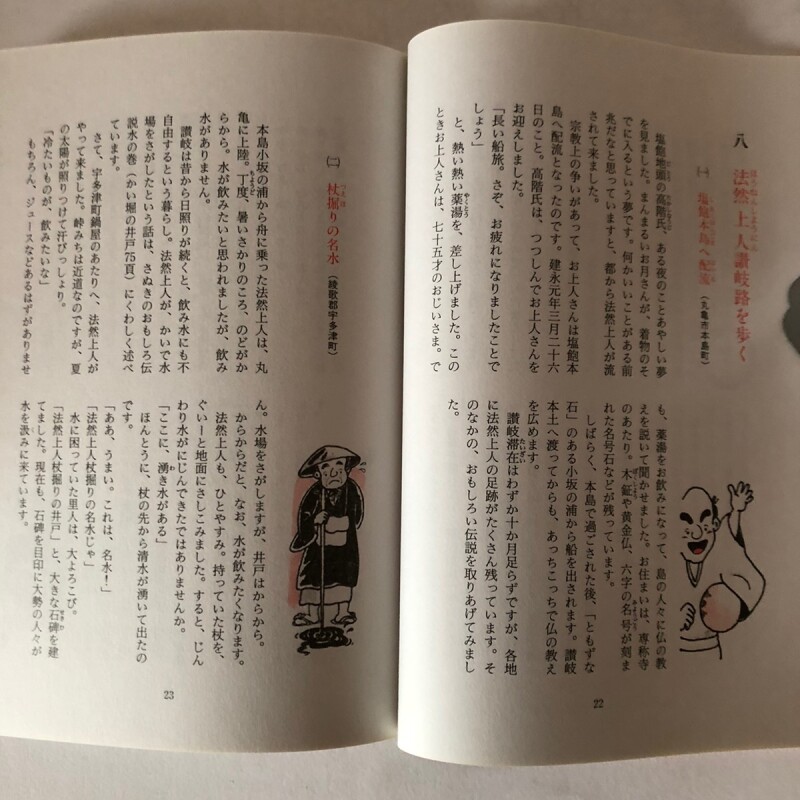 八 法然上人讃岐路を歩く
㈠ 塩飽本島へ配流（丸亀市本島町）
塩飽地頭の高階氏、ある夜のことあやしい夢
を見ました。まんまるいお月さんが、着物のそ
でに入るという夢です。何かいいことがある前
兆だなと思っていますと、都から法然上人が流
されて来ました。
宗教上の争いがあって、お上人さんは塩飽本
島へ配流となったのです。建永元年三月二十六
日のこと。高階氏は、つつしんでお上人さんを
お迎えしました。
「長い船旅。さぞ、お疲れになりましたことで
しょう」
と、熱い熱い薬湯を、差し上げました。この
ときお上人さんは、七十五才のおじいさま。で
も、薬湯をお飲みになって、島の人々に仏の教
えを説いて聞かせました。お住まいは、専称寺
のあたり。木鉦や黄金仏、六字の名号が刻ま
れた名号石などが残っています。
しばらく、本島で過ごされた後、「ともずな
石」のある小坂の浦から船を出されます。讃岐
本土へ渡ってからも、あっちこっちで仏の教え
を広めます。
讃岐滞在はわずか十か月足らずですが、各地
に法然上人の足跡がたくさん残っています。そ
のなかの、おもしろい伝説を取りあげてみまし
た。
22
㈡ 杖掘りの名水（綾歌郡宇多津町）
本島小坂の浦から舟に乗った法然上人は、丸
亀に上陸。丁度、暑いさかりのころ、のどがか
らから。水が飲みたいと思われましたが、飲み
水がありません。
讃岐は昔から日照りが続くと、飲み水にも不
自由するという暮らし。法然上人が、かいで水
場をさがしたという話は、さぬきのおもしろ伝
説水の巻（かい堀の井戸75頁）にくわしく述べ
ています。
さて、宇多津町鍋屋のあたりへ、法然上人が
やって来ました。峠みちは近道なのですが、夏
の太陽が照りつけて汗びっしょり。
「冷たいものが、飲みたいな」
もちろん、ジュースなどあるはずがありませ
ん。水場をさがしますが、井戸はからから。
からからだと、なお、水が飲みたくなります。
法然上人も、ひとやすみ。持っていた杖を、
ぐいーと地面にさしこみました。すると、じん
わり水がにじんできたではありませんか。
「ここに、湧き水がある」
ほんとうに、杖の先から清水が湧いて出たの
です。
「ああ、うまい。これは、名水！」
「法然上人杖掘りの名水じゃ」
水に困っていた里人は、大よろこび。
「法然上人杖掘りの井戸」と、大きな石碑を建
てました。現在も、石碑を目印に大勢の人々が
水を汲みに来ています。
23